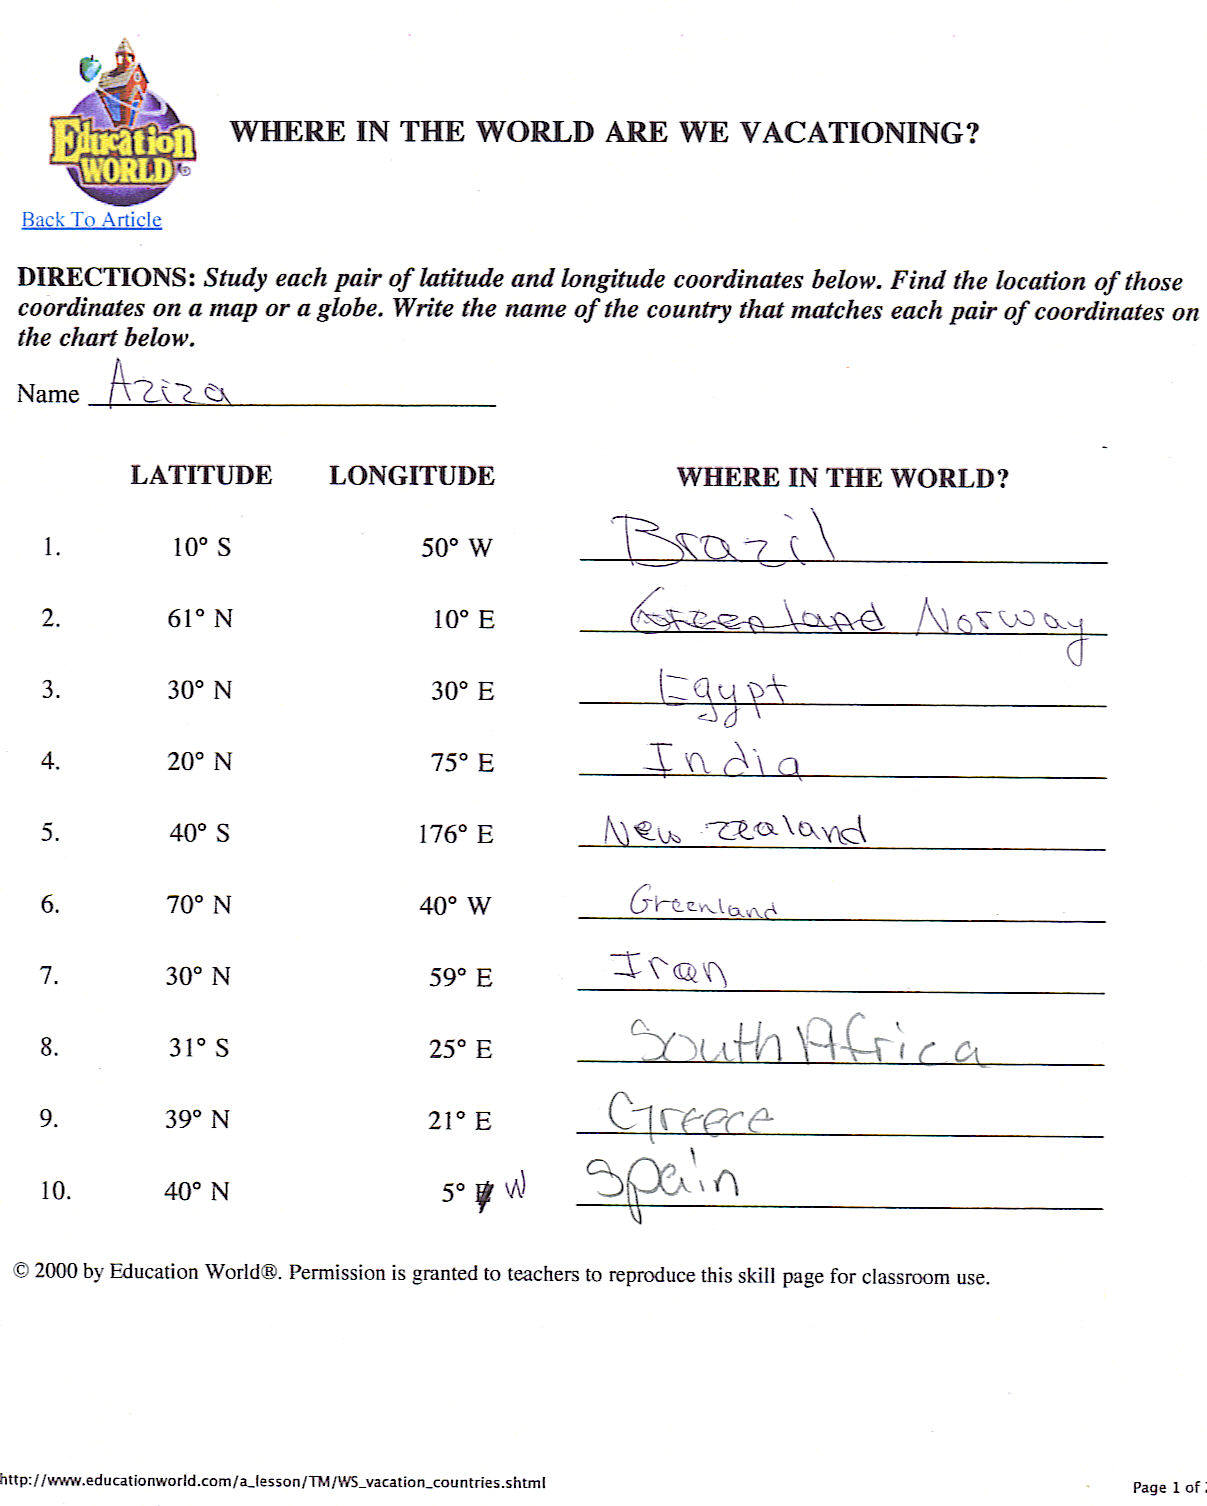 Education
WORLD®
WHERE IN THE WORLD ARE WE VACATIONING?
Back To Article
DIRECTIONS: Study each pair of latitude and longitude coordinates below. Find the location of those
coordinates on a map or a globe. Write the name of the country that matches each pair of coordinates on
the chart below.
Name Aziza
LATITUDE LONGITUDE WHERE IN THE WORLD?
1. 10° S 50° W Brazil
2. 61° N 10° E Greenland Norway
3. 30° N 30° E Egypt
4. 20° N 75° E India
5. 40° S 176° E New zealand
6. 70° N 40° W Greenland
7. 30° N 59° E Iran
8. 31° S 25° E South Africa
9. 39° N 21° E Greece
10. 40° N 5° E W Spain
© 2000 by Education World®. Permission is granted to teachers to reproduce this skill page for classroom use.
http://www.educationworld.com/a_lesson/TM/WS_vacation_countries.shtml Page 1 of